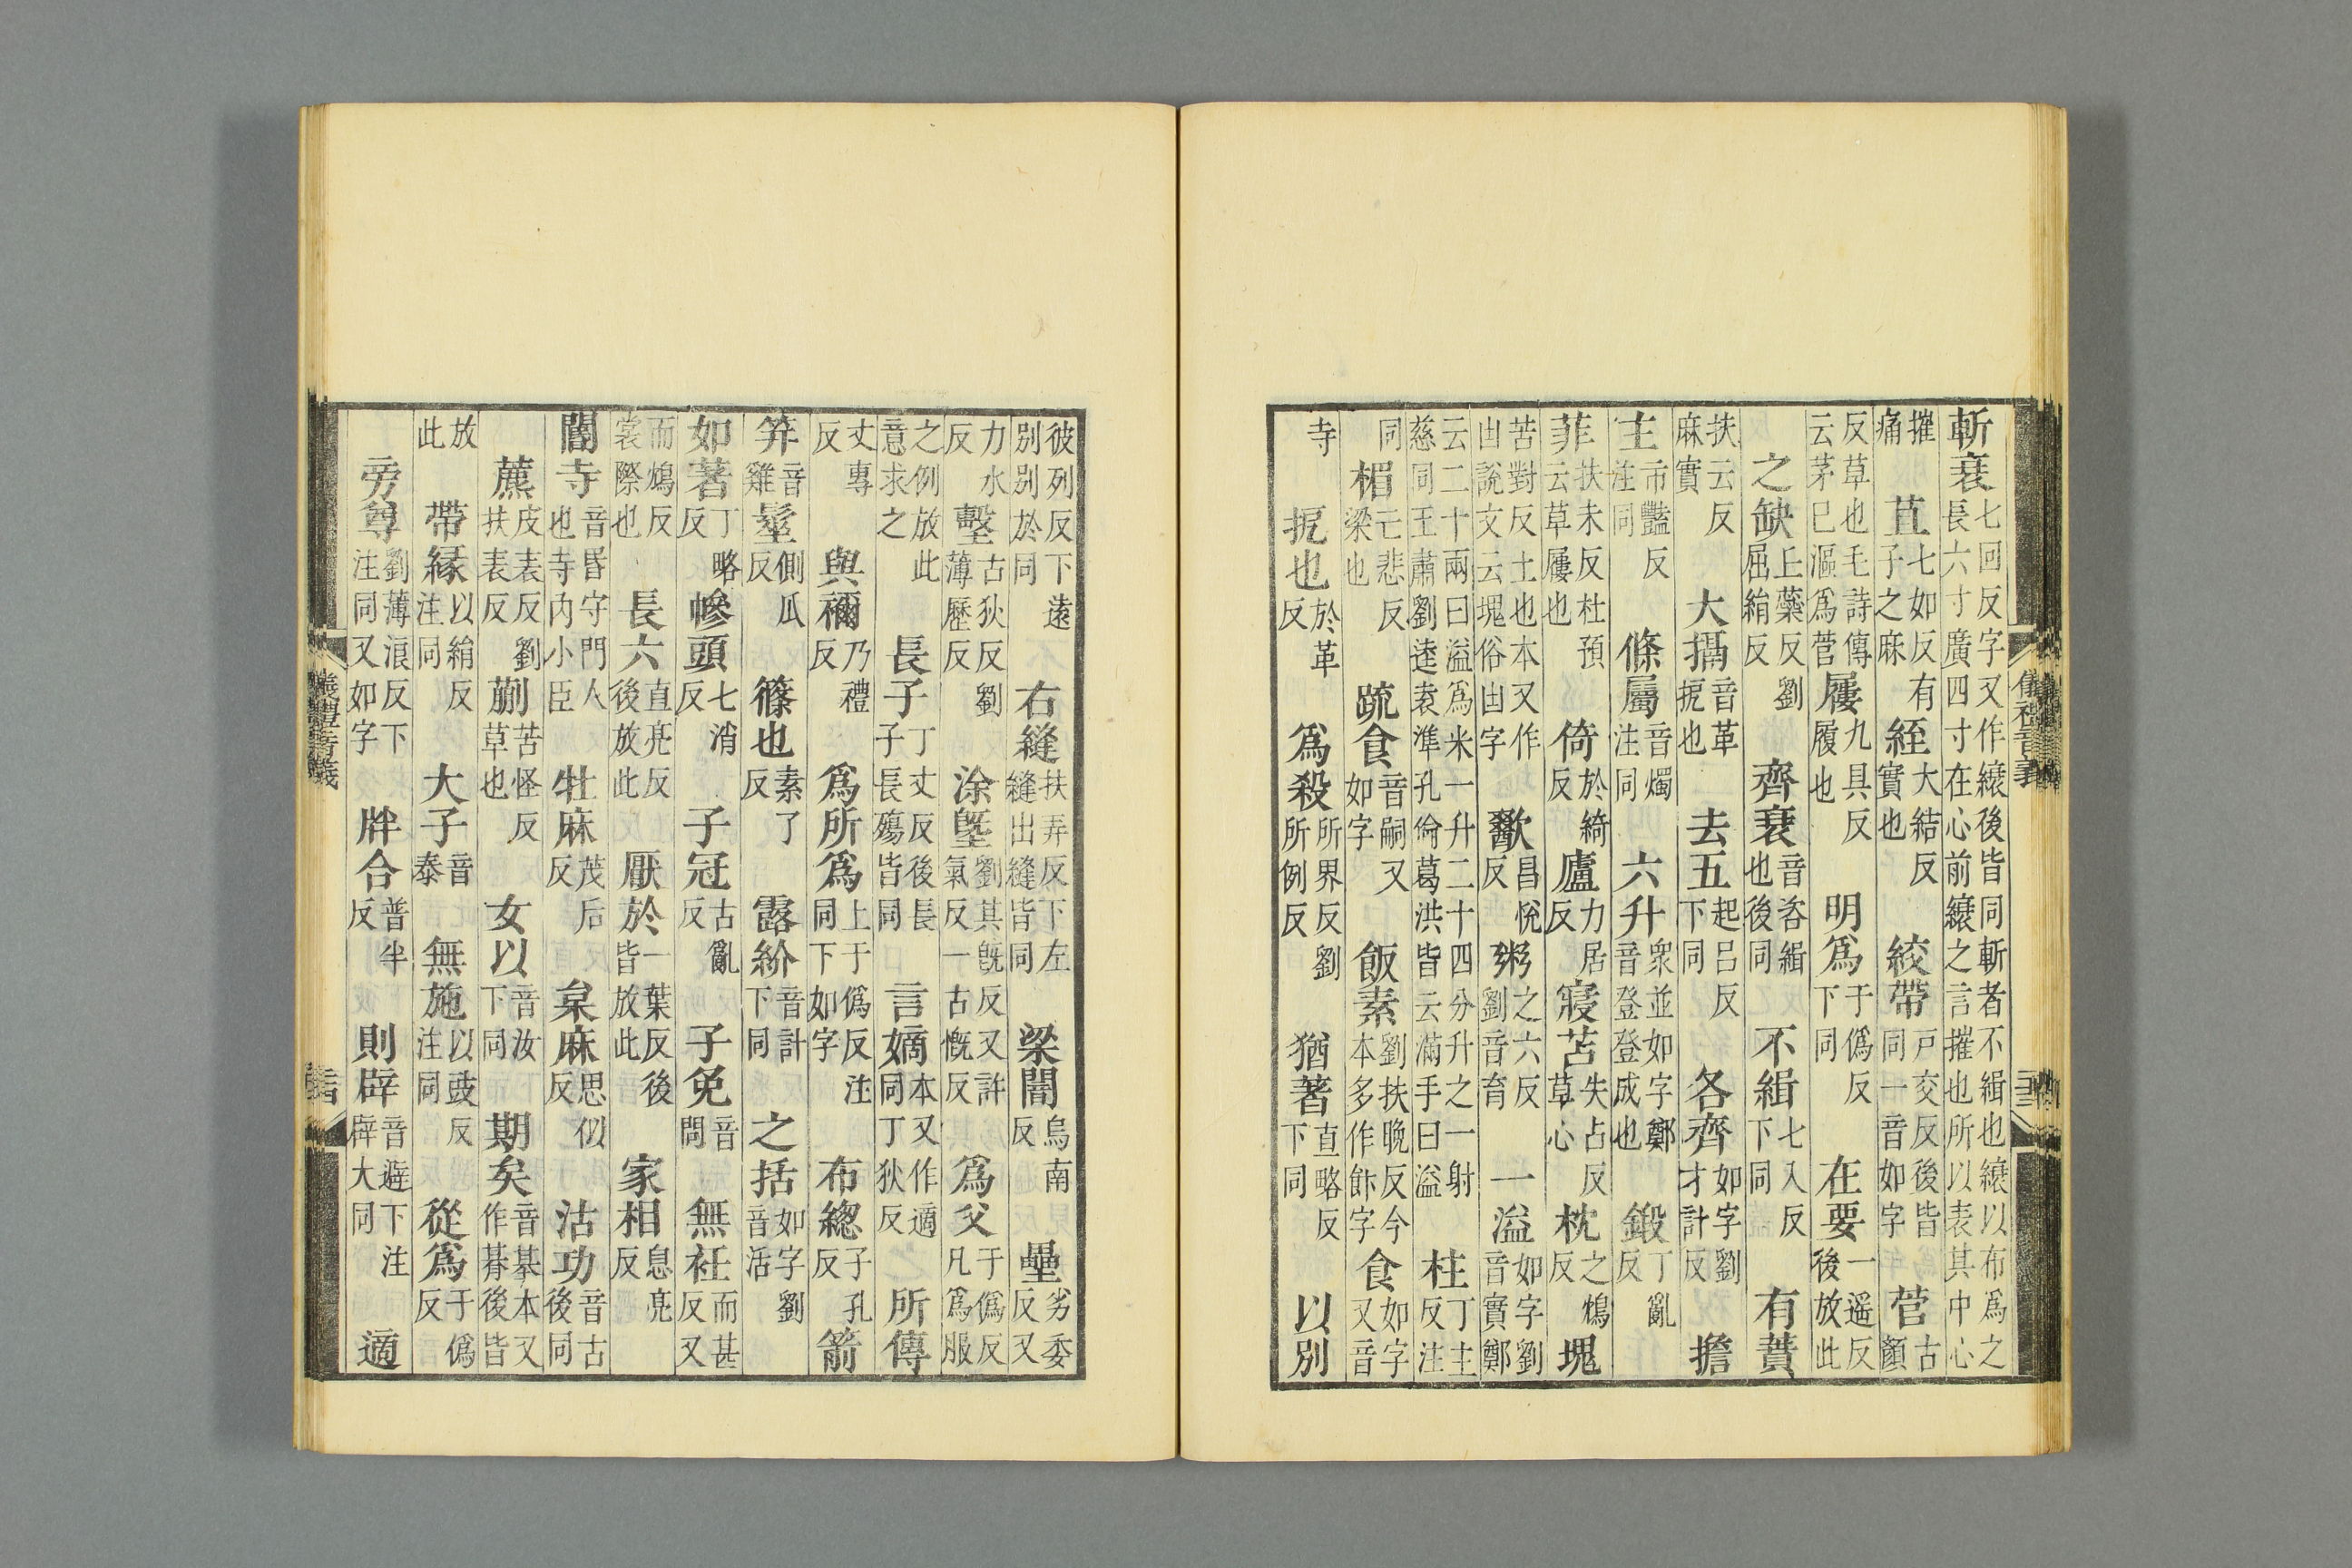 儀禮音義
斬衰七回反字又作縗後皆同斬者不緝也縗以布為之長六寸廣四寸在心前縗之言摧也所以表其中心
摧痛苴七如反有子之麻絰大結反實也絞帶戸交反後皆同一音如字菅古顏
反草也毛詩傳云茅已漚為菅屨九具反履也明為于偽反下同在要一遥反後放此
之缺上蘂反劉屈絹反齊衰音咨緝也後同不緝七入反下同有蕡
扶云反麻實大搹音革搤也去五起呂反下同各齊如字劉才計反擔
主市豔反注同條屬音燭注同六升衆並如字鄭音登登成也鍛丁亂反
菲扶未反杜預云草屨也倚於綺反廬力居反寢苫失占反草心枕之鴆反塊
苦對反土也本又作凷說文云塊俗凷字歠昌悅反粥之六反劉音育一溢如字劉音實鄭
云二十兩曰溢為米一升二十四分升之一射慈同王肅劉逵袁準孔倫葛洪皆云滿手曰溢柱丁主反注
同楣亡悲反梁也疏食音嗣又如字飯素劉扶晚反今本多作飰字食如字又音
寺搤也於革反為殺所界反劉所例反猶著直略反下同以別
彼列反下遠別別於同右縫扶弄反下左縫出縫皆同梁闇烏南反壘劣委反又
力水反墼古狄反劉薄歷反涂墍劉其既反又許氣反一古慨反為父于偽反凡為服
之例放此意求之長子丁丈反後長子長殤皆同言嫡本又作適同丁狄反所傳
丈專反與禰乃禮反為所為上于偽反注同下如字布總子孔反箭
笄音雞髽側瓜反篠也素了反露紒音計下同之括如字劉音活
如著丁略反幓頭七消反子冠古亂反子免音問無衽而甚反又
而鴆反裳際也長六直亮反後放此厭於一葉反後皆放此家相息亮反
閽寺音昏守門人也寺内小臣牡麻茂后反枲麻思似反沽功音古後同
藨皮表反劉扶表反蒯苦怪反草也女以音汝下同期矣音基本又作朞後皆
放此帶緣以絹反注同大子音泰無施以豉反注同從為于偽反
旁尊劉薄浪反下注同又如字牉合普半反則辟音避下注辟大同適
儀禮音義